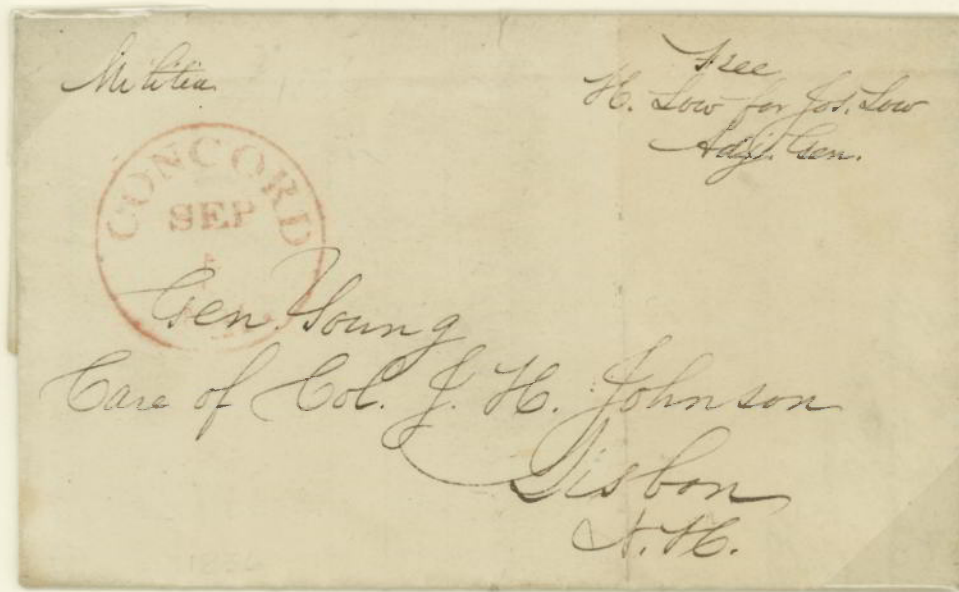 Militia
Free
H. Low for Jos. Low
Adjt. Gen.
CONCORD
SEP
Gen. Young
Care of Col. J. H. Johnson
Lisbon
N. H.